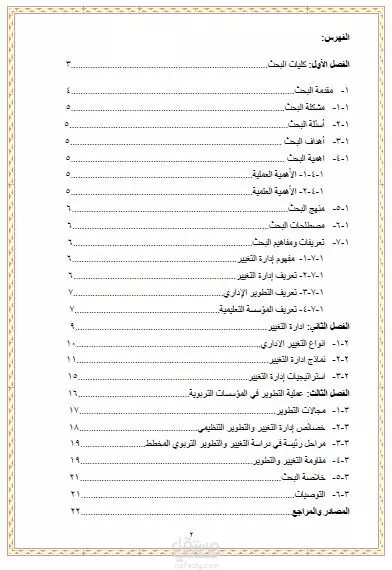 الفهرس:
الفصل الأول: كليات البحث ٣
١- مقدمة البحث ٤
١-١- مشكلة البحث ٥
٢-١- أسئلة البحث ٥
٣-١- أهداف البحث ٥
٤-١- اهمية البحث ٥
١-٤-١- الأهمية العملية ٥
٢-٤-١- الأهمية العلمية ٥
٥-١- منهج البحث ٦
٦-١- مصطلحات البحث ٦
٧-١- تعريفات ومفاهيم البحث ٦
١-٧-١- مفهوم إدارة التغيير ٦
٢-٧-١- تعريف إدارة التغيير ٦
٣-٧-١- تعريف التطوير الإداري ٧
٤-٧-١- تعريف المؤسسة التعليمية ٧
الفصل الثاني: ادارة التغيير ٩
١-٢- انواع التغيير الاداري ١٠
٢-٢- نماذج ادارة التغيير ١١
٣-٢- استراتيجيات إدارة التغيير ١٥
الفصل الثالث: عملية التطوير في المؤسسات التربوية ١٦
١-٣- مجالات التطوير ١٧
٢-٣- خصائص إدارة التغيير والتطوير التنظيمي ١٨
٣-٣- مراحل رئيسة في دراسة التغيير والتطوير التربوي المخطط ١٩
٤-٣- مقاومة التغيير والتطوير ١٩
٥-٣- خلاصة البحث ٢١
٦-٣- التوصيات ٢١
المصادر والمراجع ٢٢
٢
مستقل
nafezly.com